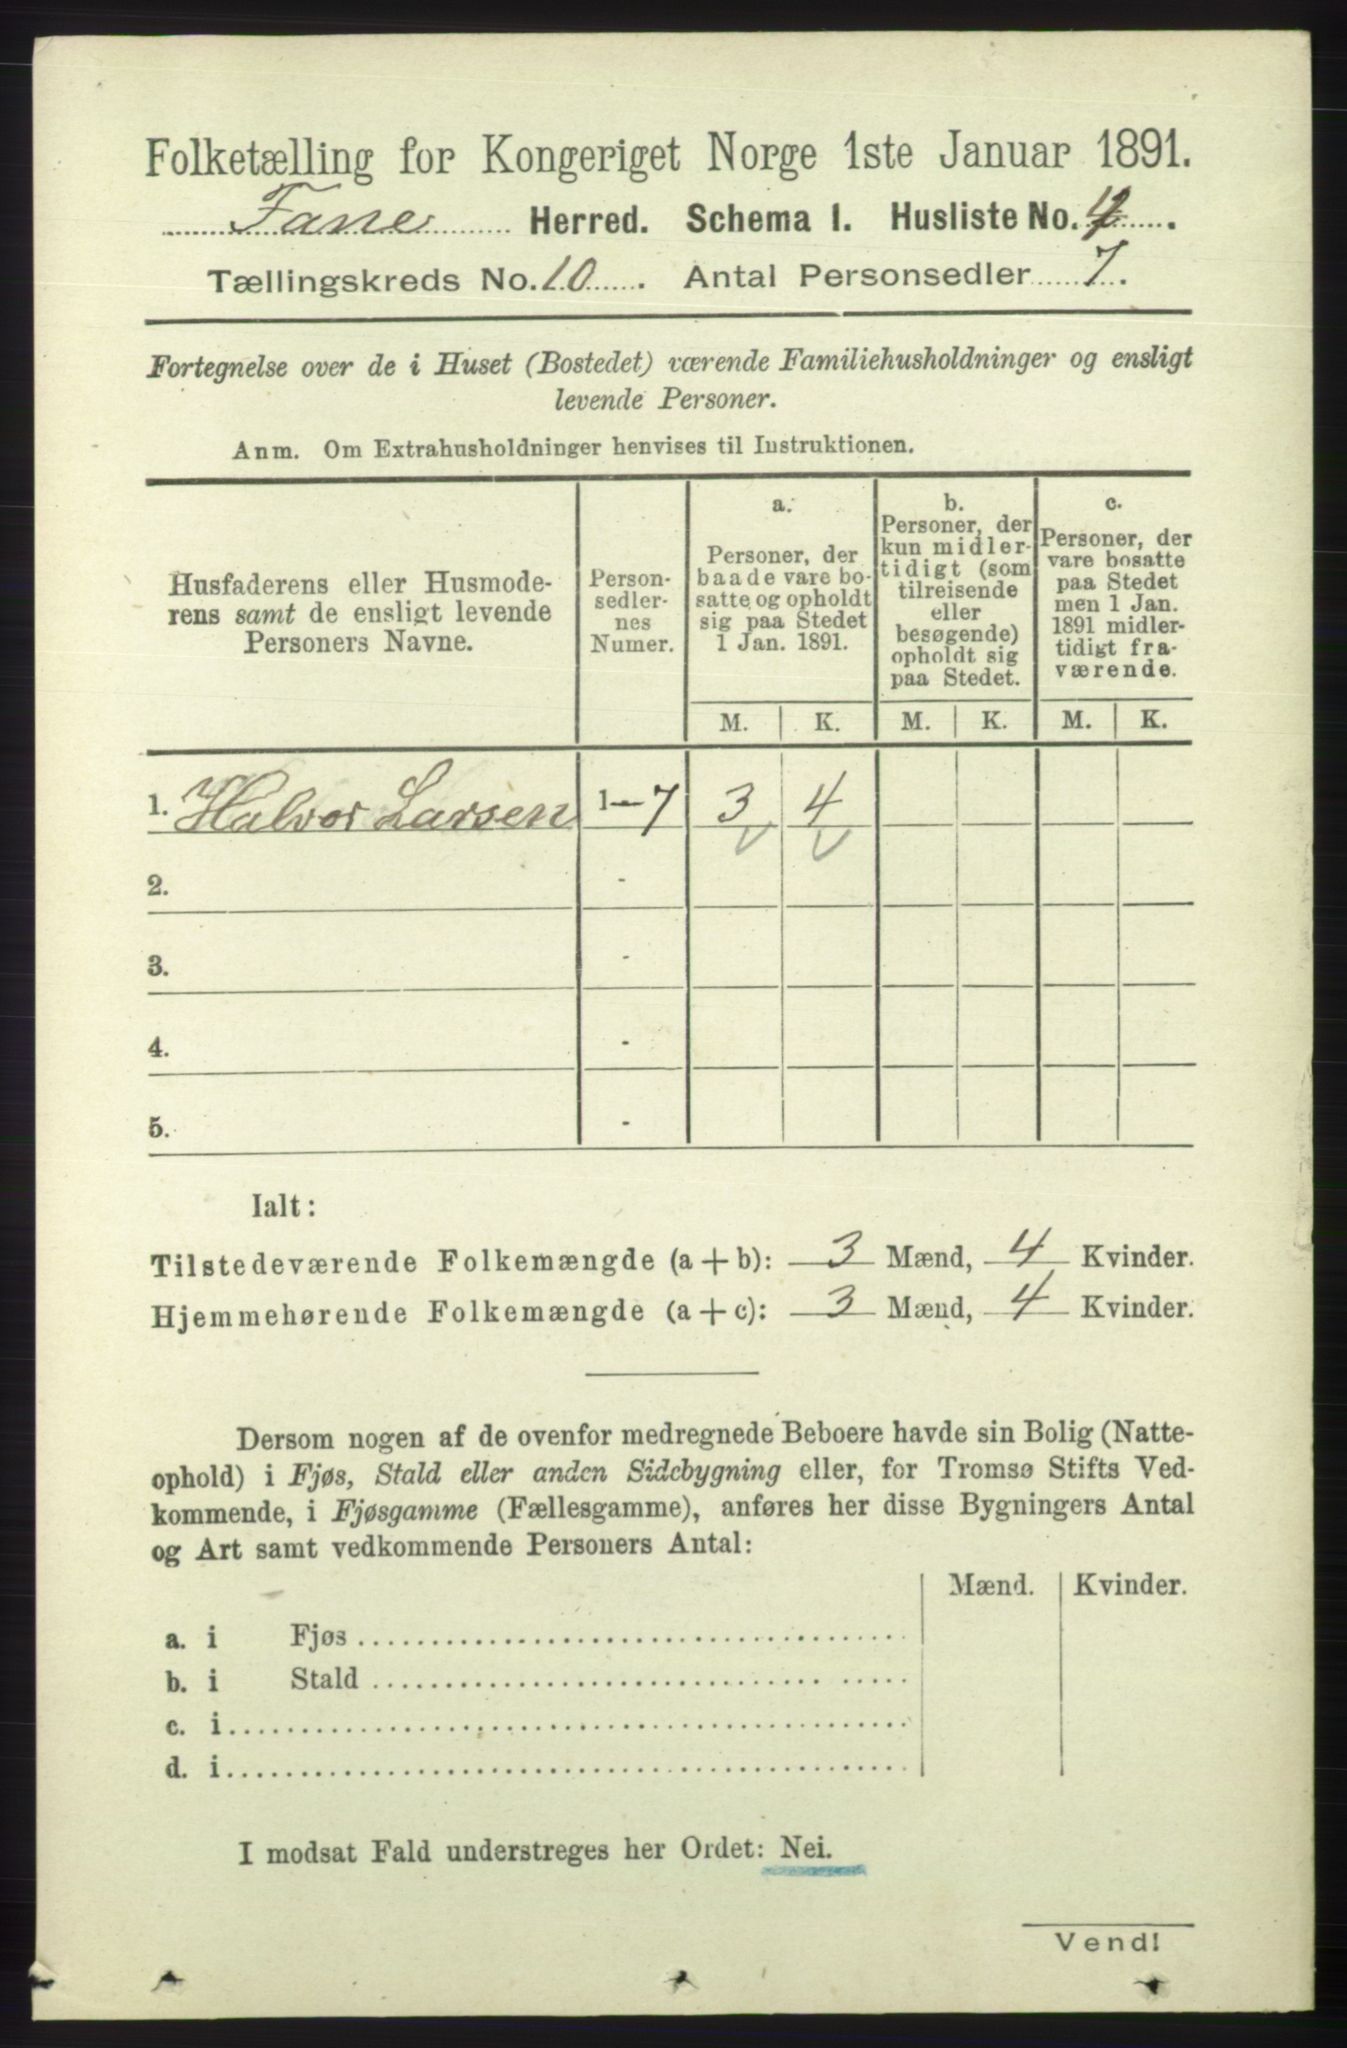 Folketælling for Kongeriget Norge 1ste Januar 1891.
Fane Herred. Schema 1. Husliste No.
Tællingskreds No. 10. Antal Personsedler 7.
Fortegnelse over de i Huset (Bostedet) værende Familiehusholdninger og ensligt
levende Personer.
Anm. Om Extrahusholdninger henvises til Instruktionen.
Husfaderens eller Husmode-
rens samt de ensligt levende
Personers Navne.
Person-
sedler-
nes
Numer.
a.
Personer, der
baade vare bo-
satte og opholdt
sig paa Stedet
1 Jan. 1891.
b.
Personer, der
kun midler-
tidigt (som
tilreisende
eller
besøgende)
opholdt sig
paa Stedet.
c.
Personer, der
vare bosatte
paa Stedet
men 1 Jan.
1891 midler-
tidigt fra-
værende.
M. K. M. K. M. K.
1. Halvor Larsen 1-7 3 4
2. -
3. -
4. -
5. -
Ialt:
Tilstedeværende Folkemængde (a + b): 3 Mænd, 4 Kvinder.
Hjemmehørende Folkemængde (a + c): 3 Mænd, 4 Kvinder.
Dersom nogen af de ovenfor medregnede Beboere havde sin Bolig (Natte-
ophold) i Fjøs, Stald eller anden Sidebygning eller, for Tromsø Stifts Ved-
kommende, i Fjøsgamme (Fællesgamme), anføres her disse Bygningers Antal
og Art samt vedkommende Personers Antal:
Mænd. Kvinder.
a. i Fjøs
b. i Stald
c. i
d. i
I modsat Fald understreges her Ordet: Nei.
Vend!